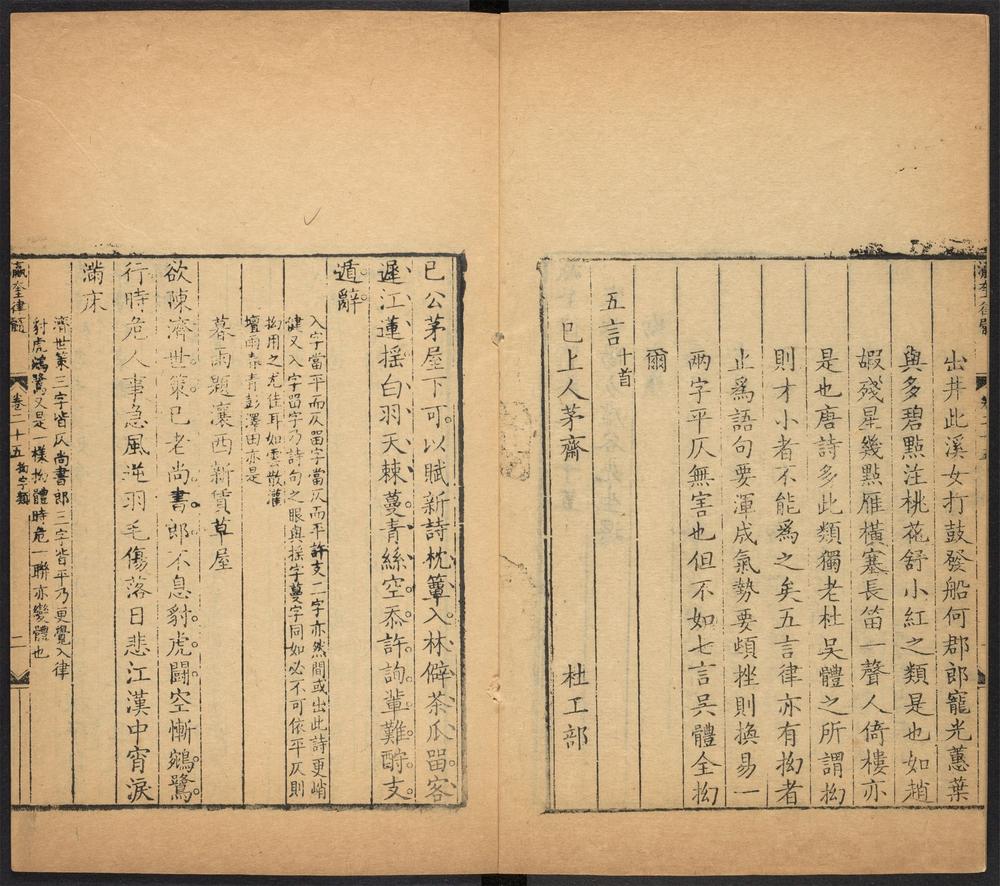 出井此溪女打鼓發船何郡郎寵光蕙葉
與多碧點注桃花舒小紅之類是也如趙
嘏殘星幾點雁橫塞長笛一聲人倚樓亦
是也唐詩多此類獨老杜吳體之所謂拗
則才小者不能爲之矣五言律亦有拗者
止爲語句要渾成氣勢要頓挫則換易一
兩字平仄無害也但不如七言吳體全拗
爾
五言十首
巳上人茅齋　杜工部
巳公茅屋下可以賦新詩枕簟入林僻茶瓜留客
遲江蓮搖白羽天棘蔓青絲空忝許詢輩難酧支
遁辭
入字當平而仄留字當仄而平許支二字亦然間或出此詩更峭
健又入字留字乃詩句之眼與搖字蔓字同如必不可依平仄則
拗用之尤佳耳如雲散灌
壇雨春青彭澤田亦是
暮雨題瀼西新賃草屋
欲陳濟世策已老尚書郎不息豺虎鬪空慚鵷鷺
行時危人事急風逆羽毛傷落日悲江漢中宵淚
滿床
濟世策三字皆仄尚書郎三字皆平乃更覺入律
豺虎鵷鷺又是一樣拗體時危一聯亦變體也
瀛奎律髓　卷二十五　拗字類　二